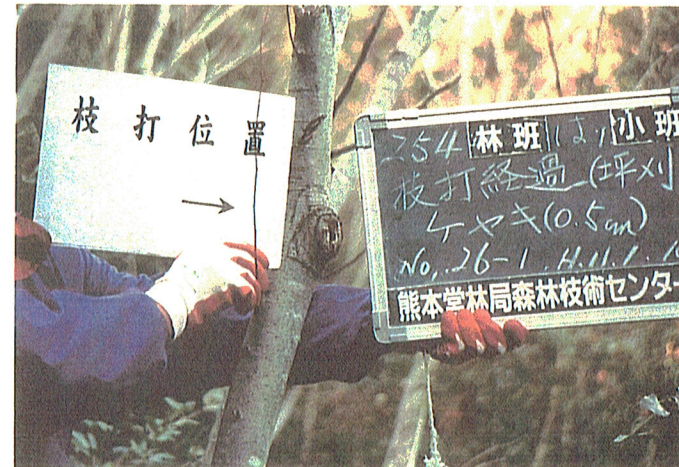 枝打位置
→
254 林班 は1 小班
枝打経過 (坪刈
ケヤキ(0.5cm)
No,.26-1. H.11.1.1
熊本営林局森林技術センター